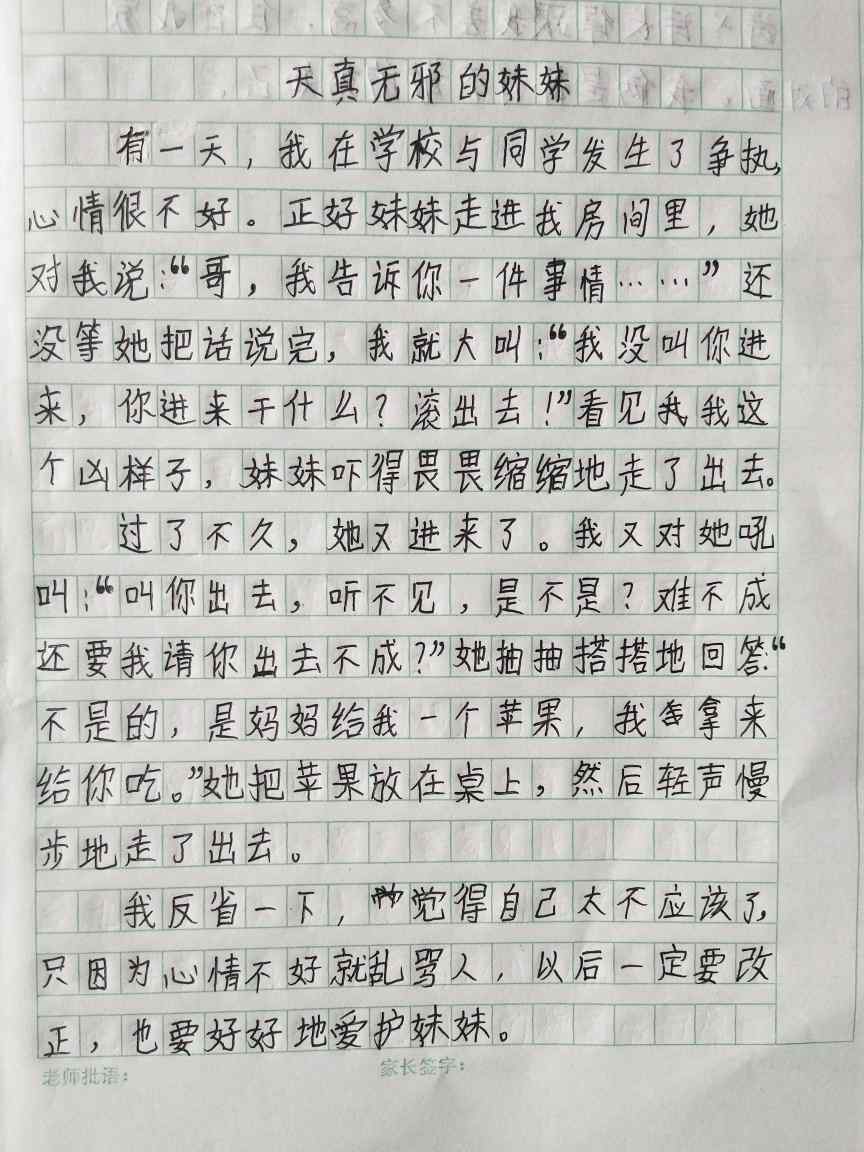 天真无邪的妹妹
有一天，我在学校与同学发生了争执，
心情很不好。正好妹妹走进我房间里，她
对我说：“哥，我告诉你一件事情……”还
没等她把话说完，我就大叫：“我没叫你进
来，你进来干什么？滚出去！”看见我我这
个凶样子，妹妹吓得畏畏缩缩地走了出去。
过了不久，她又进来了。我又对她吼
叫：“叫你出去，听不见，是不是？难不成
还要我请你出去不成？”她抽抽搭搭地回答：“
不是的，是妈妈给我一个苹果，我拿来
给你吃。”她把苹果放在桌上，然后轻声慢
步地走了出去。
我反省一下，觉得自己太不应该了，
只因为心情不好就乱骂人，以后一定要改
正，也要好好地爱护妹妹。
老师批语：
家长签字：